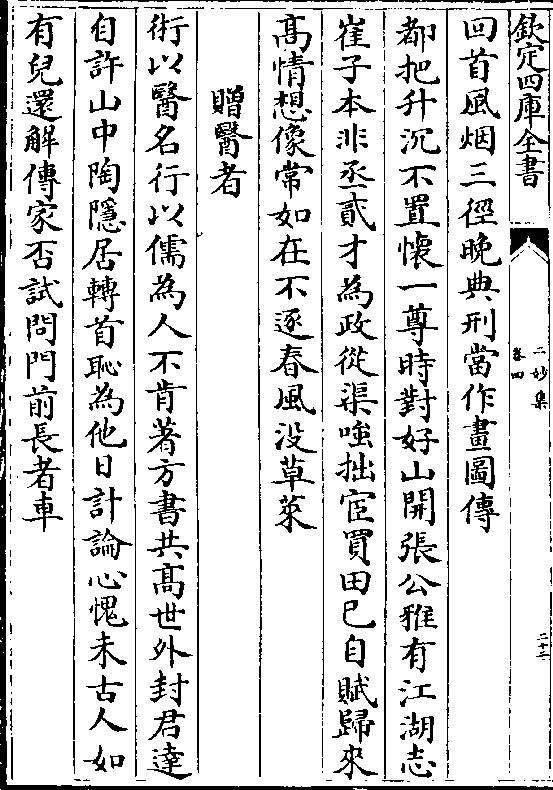 欽定四庫全書
二妙集
卷四
二十二
回首風烟三徑晚典刑當作畫圖傳
都把升沉不置懷一尊時對好山開張公雅有江湖志
崔子本非丞貳才為政從渠嗤拙宦買田已自賦歸來
高情想像常如在不逐春風没草萊
贈醫者
術以醫名行以儒為人不肯著方書共髙世外封君達
自許山中陶隱居轉首恥為他日計論心愧未古人如
有兒還解傳家否試問門前長者車